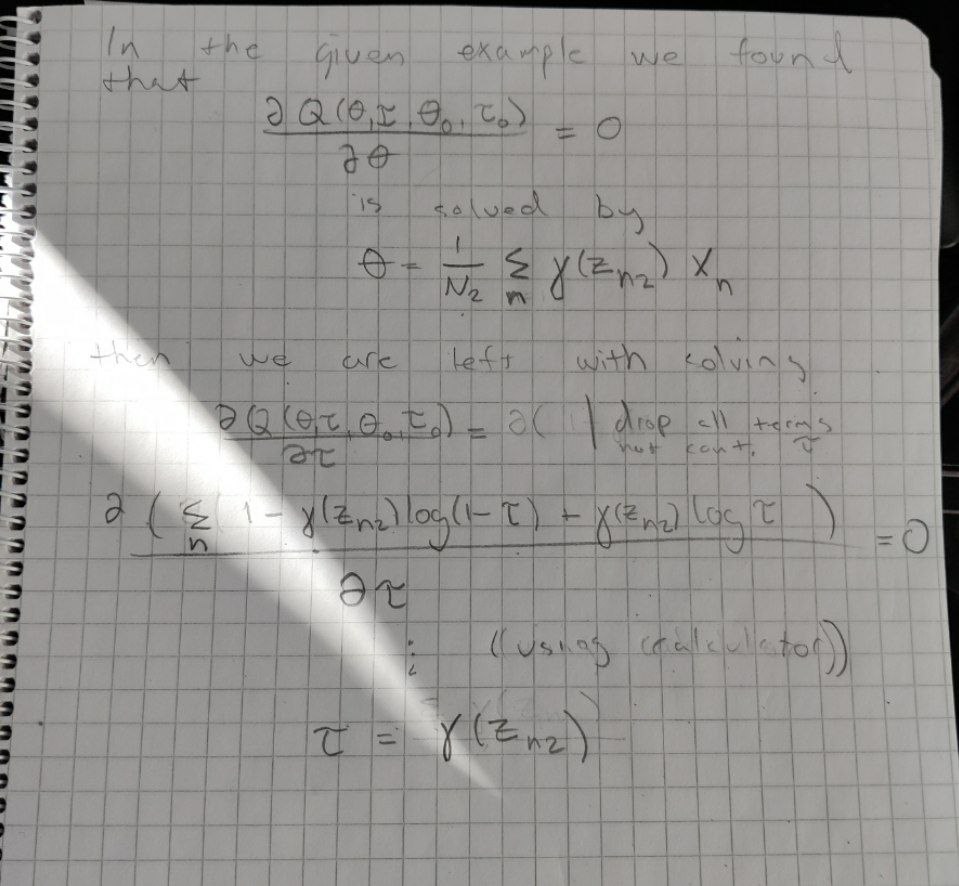 In the given example we found
that
∂ Q (θ, τ, θ₀, τ₀) / ∂θ = 0
is solved by
θ = 1/N₂ Σₙ γ(zₙ₂) xₙ
then we are left with solving
∂ Q (θ, τ, θ₀, τ₀) / ∂τ = ∂( | drop all terms
not cont. τ
∂ ( Σₙ ( 1 - γ(zₙ₂) log(1 - τ) + γ(zₙ₂) log τ ) / ∂τ = 0
⋮ ((using calculator))
τ = γ(zₙ₂)